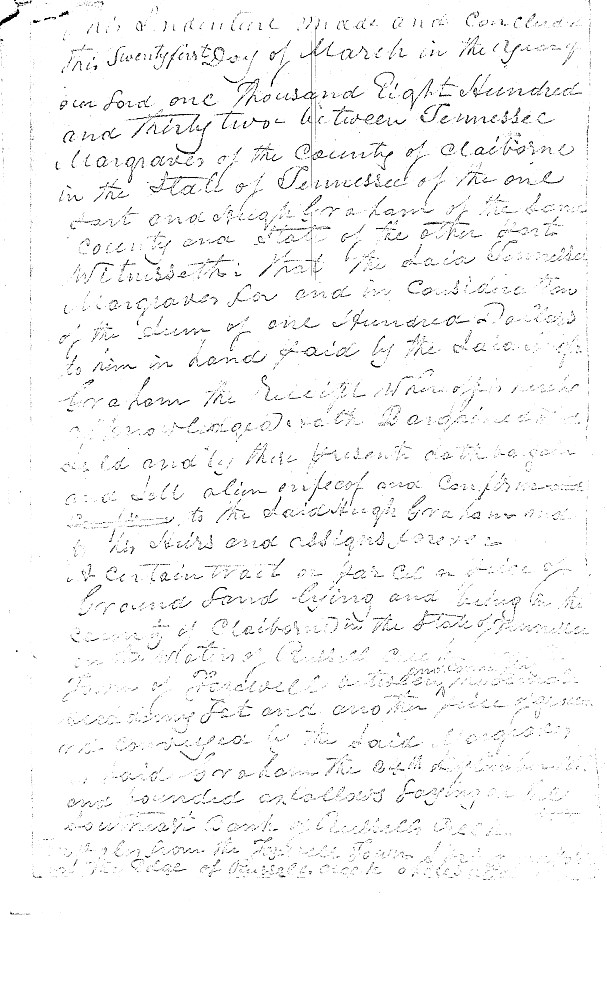 This Indenture made and Concluded
this Twentyfirst Day of March in the year of
our Lord one Thousand Eight Hundred
and Thirty two between Tennessee
Margraves of the County of Claiborne
in the State of Tennessee of the one
Part and Hugh Graham of the Same
County and State of the other Part
Witnesseth: that the Said Tennessee
Margraves for and in Consideration
of the Sum of one Hundred Dollars
to him in hand Paid by the Said Hugh
Graham the Receipt Whereof is hereby
acknowledged hath Bargained and
Sold and by these presents doth bargain
and Sell alien enfeof and Confirm and
to the Said Hugh Graham and
to his Heirs and assigns forever
A Certain tract or parcel or piece of
Ground Land lying and being in the
County of Claiborne in the State of Tennessee
on the Waters of Russell Creek
Town of
Lot and another piece of ground
conveyed by the Said Margraves
to Said Graham the 24th day
and bounded as follows Laying on the
Southeast Bank of Russells Creek
from the Town
at the Edge of Russells creek